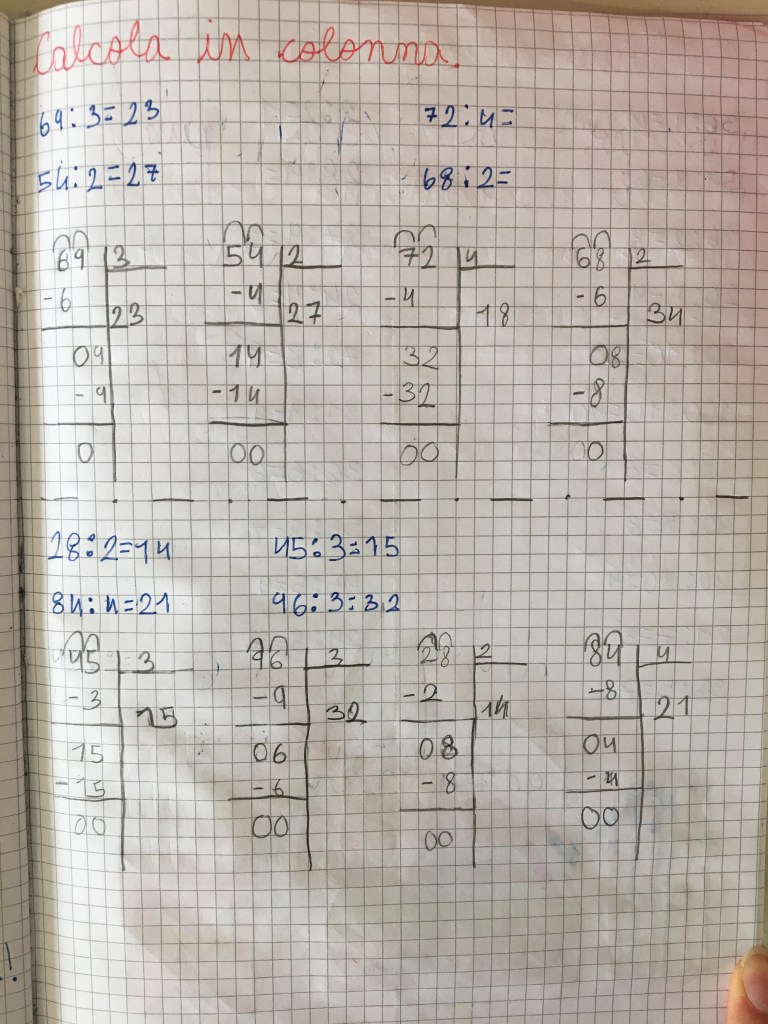 Calcola in colonna.
69:3=23 72:4=
54:2=27 68:2=
69 3 54 2 72 4 68 2
-6 -4 -4 -6
23 27 18 34
09 14 32 08
-9 -14 -32 -8
0 00 00 0
28:2=14 45:3=15
84:4=21 96:3=32
45 3 96 3 28 2 84 4
-3 -9 -2 -8
15 32 14 21
15 06 08 04
-15 -6 -8 -4
00 00 00 00
!